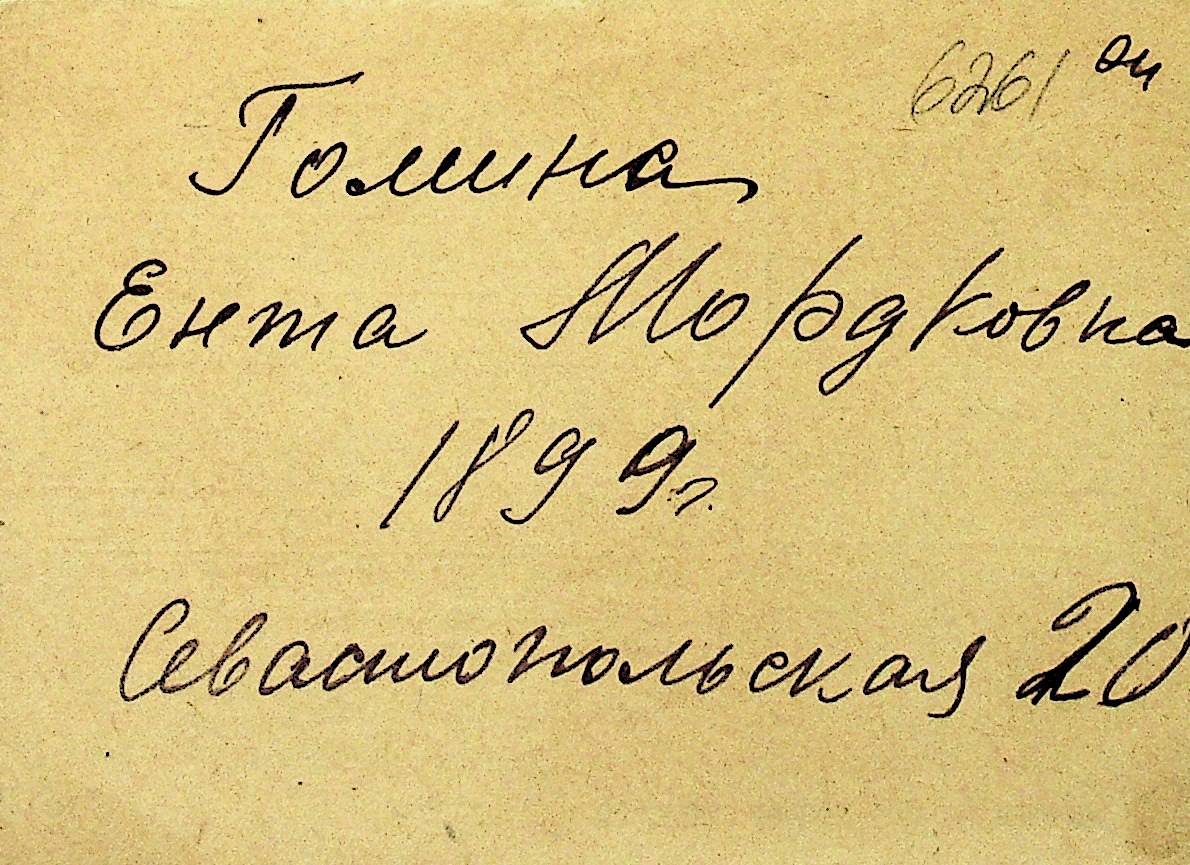 6261
Гомина
Ента Мордковна
1899 г.
Севастопольская 20